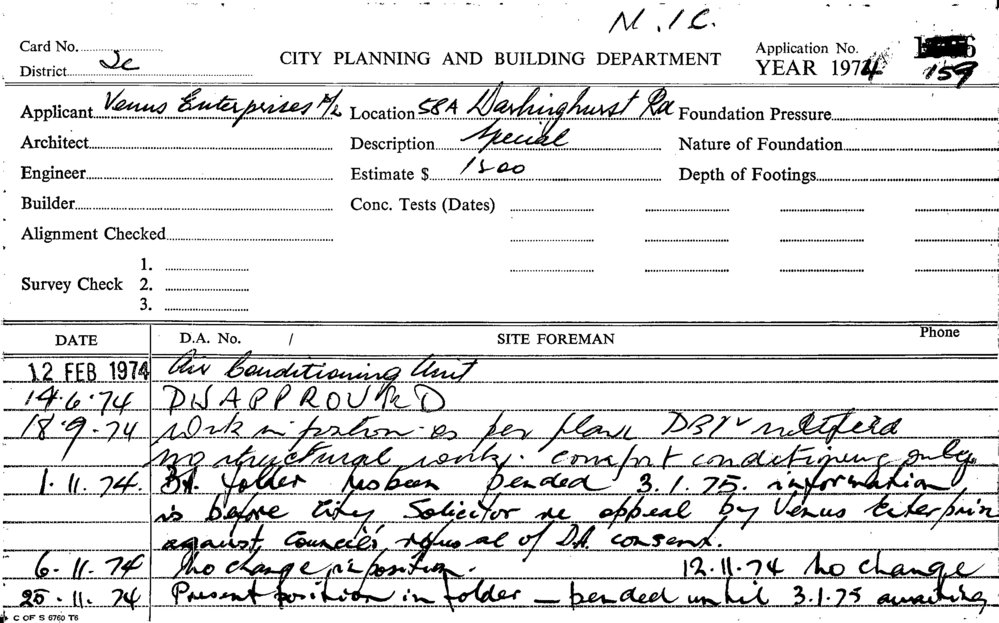 N.I.C.
Card No.
District Je
CITY PLANNING AND BUILDING DEPARTMENT
Application No. 159
YEAR 1974
Applicant Venus Enterprises P/L Location 58A Darlinghurst Rd Foundation Pressure
Architect Description Special Nature of Foundation
Engineer Estimate $ 1500 Depth of Footings
Builder Conc. Tests (Dates)
Alignment Checked
1.
Survey Check 2.
3.
DATE D.A. No. / SITE FOREMAN Phone
12 FEB 1974 Air Conditioning Unit
14.6.74 DISAPPROVED
18.9.74 Work in position as per plan
no structural work. comfort conditioning only.
1.11.74. B.A. folder has been pended 3.1.75. information
is before City Solicitor re appeal by Venus Enterpris
against Council's refusal of D.A. consent.
6.11.74 No change in position. 12.11.74 No change
25.11.74 Present position in folder — pended until 3.1.75 awaiting
C OF S 6760 T6